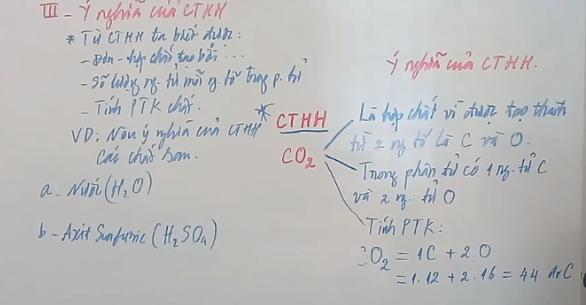 III - Ý nghĩa của CTHH
* Từ CTHH ta biết được:
- Đơn - hợp chất tạo bởi ...
- Số lượng ng. tử mỗi ng. tố trong p. tử
- Tính PTK chất.
VD: Nêu ý nghĩa của CTHH
Các chất sau.
a - Nước (H₂O)
b - Axit Sunfuric (H₂SO₄)
Ý nghĩa của CTHH.
* CTHH
CO₂
Là hợp chất vì được tạo thành
từ 2 ng tố là C và O.
- Trong phân tử có 1 ng. tử C
và 2 ng. tử O
- Tính PTK:
CO₂ = 1C + 2.O
= 1.12 + 2.16 = 44 đvC